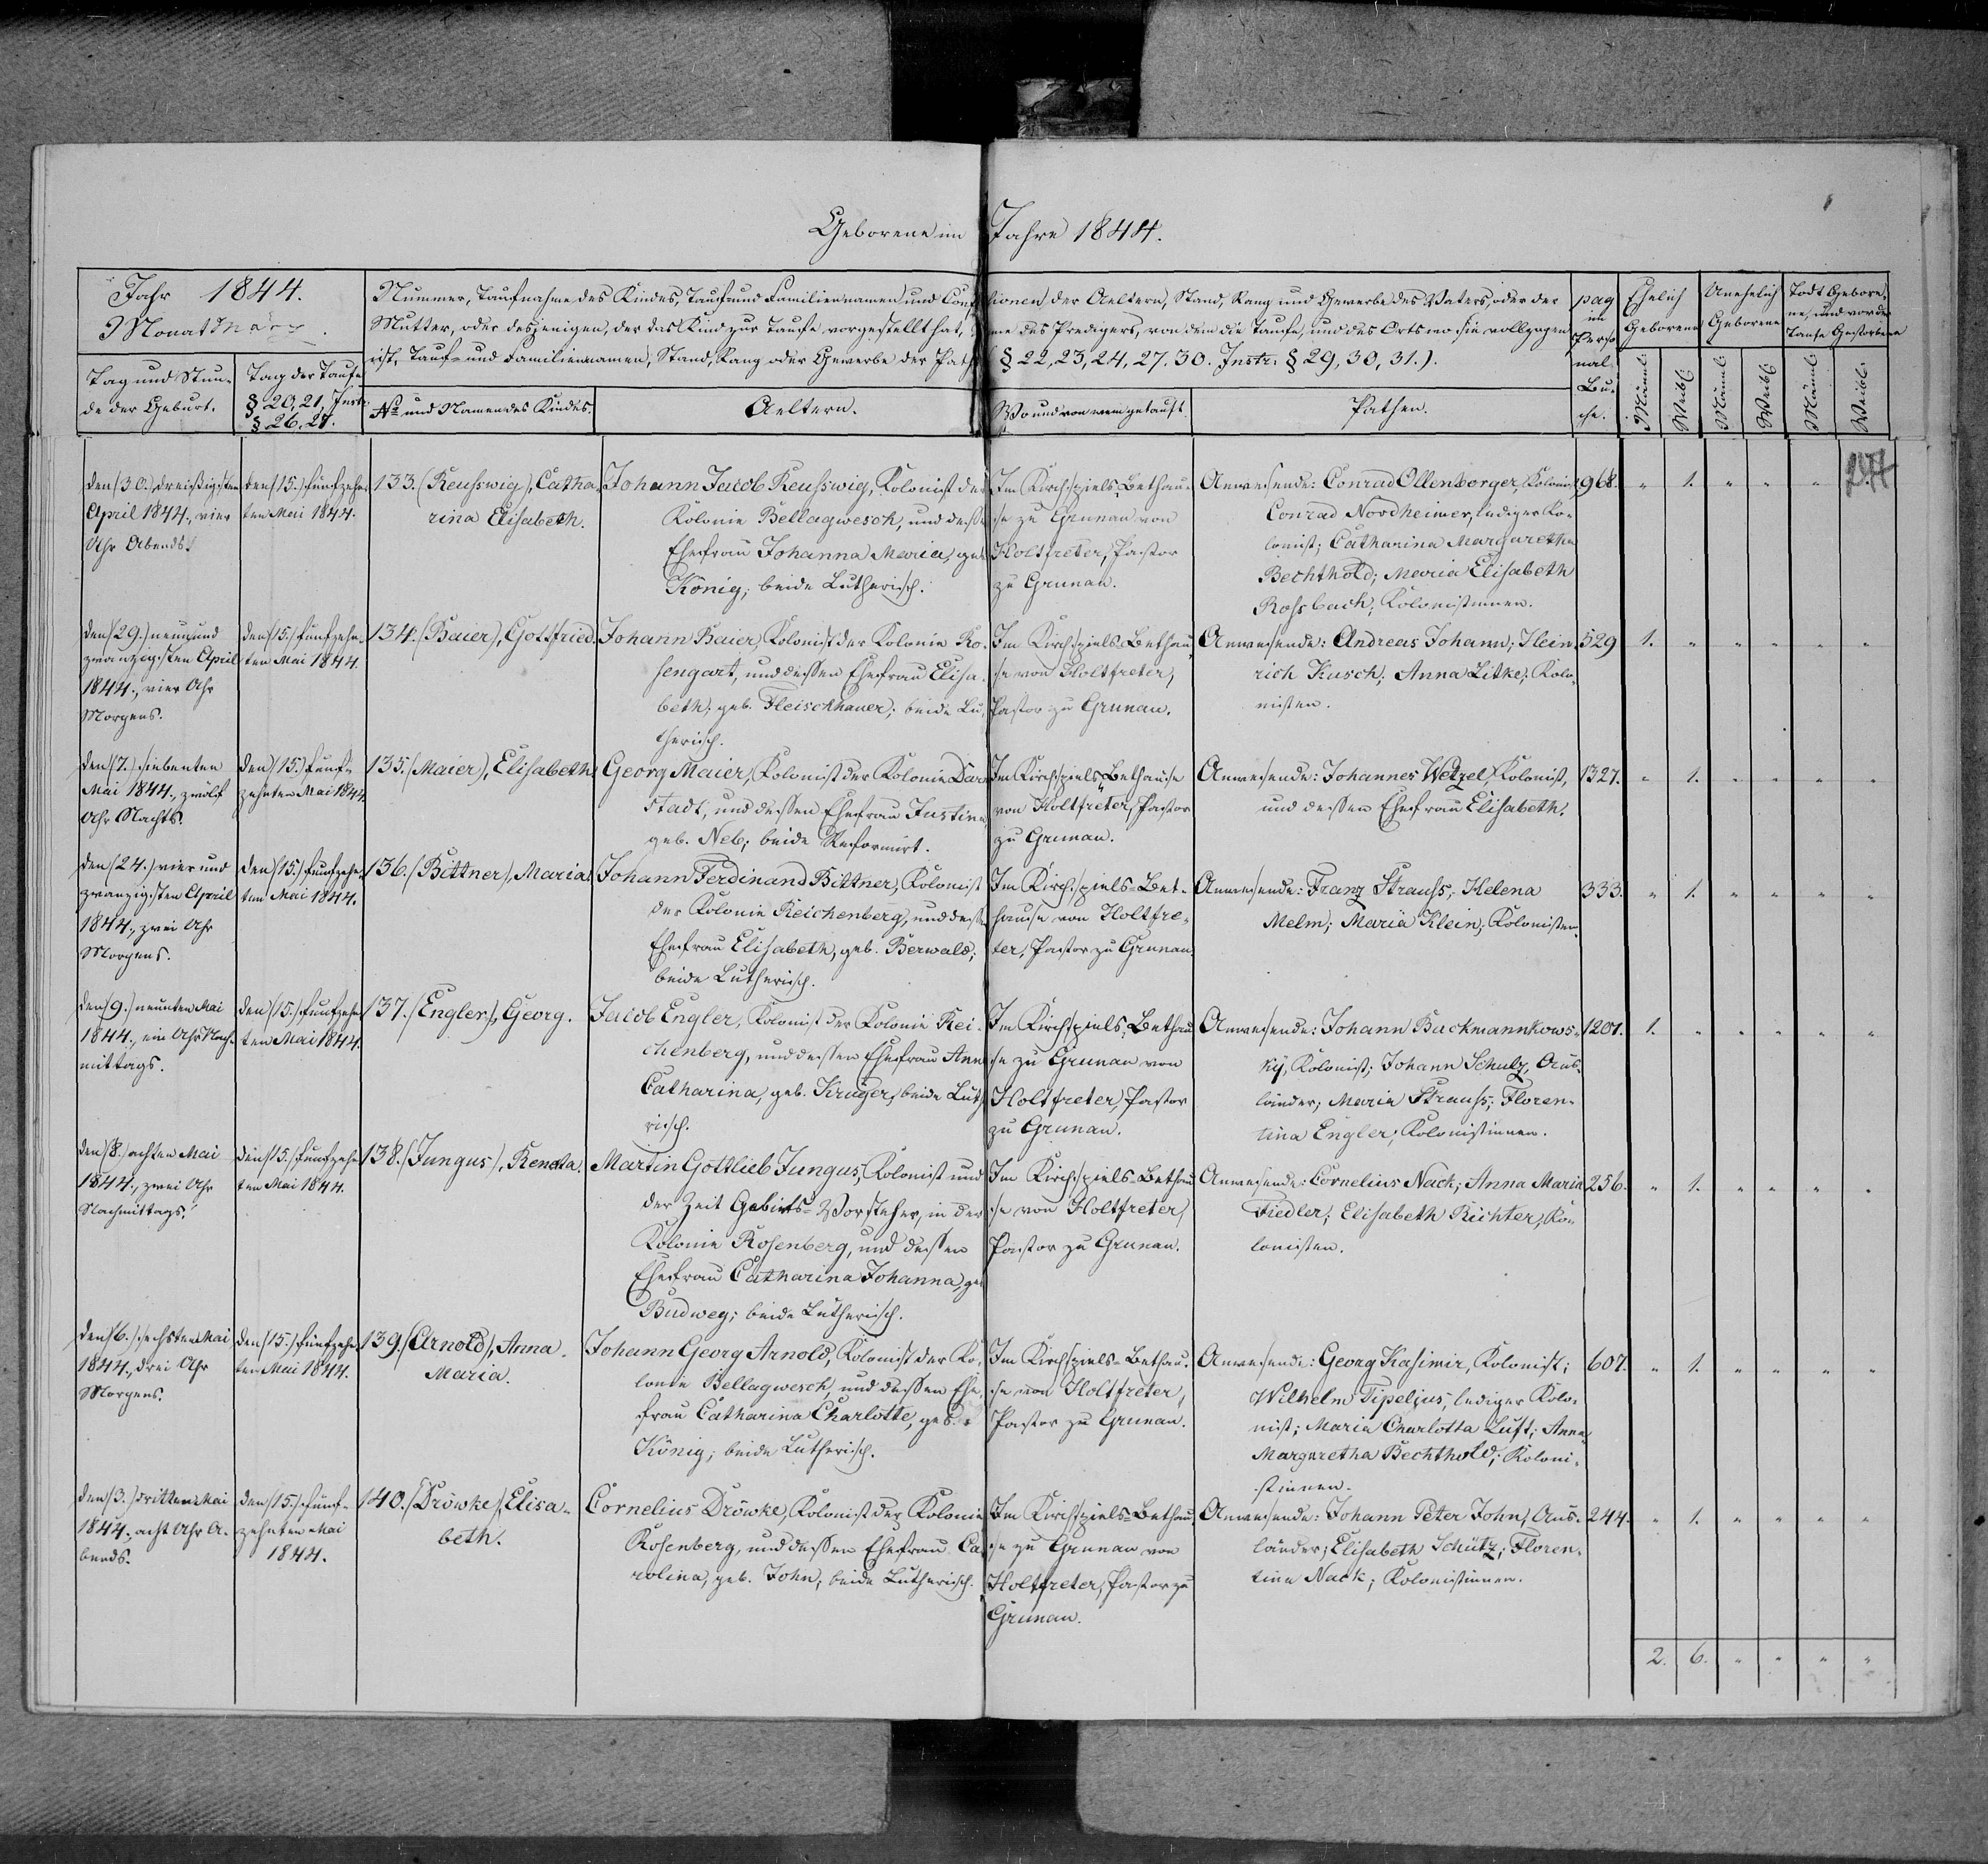 Geborene im Jahre 1844.
Jahr 1844.
Monat März.
Nummer, Taufnahme des Kindes, Tauf- und Familiennamen und Confessionen der Aeltern, Stand, Rang und Gewerbe des Vaters oder der
Mutter, oder desjenigen, der das Kind zur Taufe vorgestellt hat, me des Predigers, von dem die Taufe, und des Orts wo sie vollzogen
ist, Tauf- und Familiennamen, Stand, Rang oder Gewerbe der Path (§ 22, 23, 24, 27. 30. Instr. § 29, 30, 31.).
pag
im
Perso
nal-
Bu-
che.
Ehelich
Geborene
Unehelich
Geborene
Todt Gebore-
ne, und vor der
Taufe Gestorbene
Tag und Stun-
de der Geburt.
Tag der Taufe
§ 20, 21. Instr.
§ 26. 27.
No und Namen des Kindes.
Aeltern.
Wo und von wem getauft.
Pathen.
Männl.
Weibl.
Männl.
Weibl.
Männl.
Weibl.
den (30.) dreißigsten
April 1844., vier
Uhr Abends.
den (15.) fünfzehn-
ten Mai 1844.
133. (Reusswig), Catha-
rina Elisabeth.
Johann Jacob Reusswig, Kolonist der
Kolonie Bellagwesch, und dessen
Ehefrau Johanna Maria, geb.
König; beide Lutherisch.
Im Kirchspiels-Bethau-
se zu Grunau von
Holtfreter, Pastor
zu Grunau.
Anwesende: Conrad Ollenborger, Kolonist;
Conrad Nordheimer, lediger Ko-
lonist; Catharina Margaretha
Bechthold; Maria Elisabeth
Rossbach; Kolonistinnen.
968. " 1. " " "
den (29.) neunund
zwanzigsten April
1844., vier Uhr
Morgens.
den (15.) fünfzehn-
ten Mai 1844.
134. (Baier), Gottfried.
Johann Baier, Kolonist der Kolonie Ro-
sengart, und dessen Ehefrau Elisa-
beth; geb. Fleischhauer; beide Lu-
therisch.
Im Kirchspiels-Bethau-
se von Holtfreter,
Pastor zu Grunau.
Anwesende: Andreas Johann; Hein-
rich Kusch; Anna Litke; Kolo-
nisten.
529 1. " " " " "
den (7.) siebenten
Mai 1844., zwölf
Uhr Nachts.
den (15.) fünf-
zehnten Mai 1844.
135. (Maier), Elisabeth.
Georg Maier, Kolonist der Kolonie Darm
stadt, und dessen Ehefrau Justine
geb. Neb; beide Reformirt.
Im Kirchspiels-Bethause
von Holtfreter, Pastor
zu Grunau.
Anwesende: Johannes Wetzel, Kolonist,
und dessen Ehefrau Elisabeth.
1327. " 1. " " " "
den (24.) vier und
zwanzigsten April
1844., zwei Uhr
Morgens.
den (15.) fünfzehn-
ten Mai 1844.
136. (Bittner), Maria.
Johann Ferdinand Bittner, Kolonist
der Kolonie Reichenberg, und dessen
Ehefrau Elisabeth, geb. Berwald;
beide Lutherisch.
Im Kirchspiels-Bet-
hause von Holtfre-
ter, Pastor zu Grunau.
Anwesende: Franz Strauss; Helena
Melm; Maria Klein; Kolonisten.
333. " 1. " " " "
den (9.) neunten Mai
1844., ein Uhr Nach-
mittags.
den (15.) fünfzehn-
ten Mai 1844.
137. (Engler), Georg.
Jacob Engler, Kolonist der Kolonie Rei-
chenberg, und dessen Ehefrau Anna
Catharina, geb. Krüger, beide Luthe
risch.
Im Kirchspiels-Bethau-
se zu Grunau von
Holtfreter, Pastor
zu Grunau.
Anwesende: Johann Buckmannkows-
ky, Kolonist; Johann Schulz, Aus-
länder; Maria Strauss; Floren-
tina Engler; Kolonistinnen.
1201. 1. " " " " "
den (8.) achten Mai
1844., zwei Uhr
Nachmittags.
den (15.) fünfzehn-
ten Mai 1844.
138. (Jungus), Renata.
Martin Gottlieb Jungus, Kolonist und
der Zeit Gebiets-Vorsteher, in der
Kolonie Rosenberg, und dessen
Ehefrau Catharina Johanna, geb
Budweg; beide Lutherisch.
Im Kirchspiels-Bethau
se von Holtfreter,
Pastor zu Grunau.
Anwesende: Cornelius Nack; Anna Maria
Fiedler; Elisabeth Richter, Ko-
lonisten.
256. " 1. " " " "
den (6.) sechsten Mai
1844., drei Uhr
Morgens.
den (15.) fünfzehn-
ten Mai 1844.
139. (Arnold), Anna
Maria.
Johann Georg Arnold, Kolonist der Ko-
lonie Bellagwesch, und dessen Ehe-
frau Catharina Charlotte, geb.
König; beide Lutherisch.
Im Kirchspiels-Bethau-
se von Holtfreter,
Pastor zu Grunau.
Anwesende: Georg Kasimir, Kolonist;
Wilhelm Tipeljus, lediger Kolo-
nist; Maria Charlotta Luft; Anna
Margaretha Bechthold; Koloni-
stinnen.
607. " 1. " " " "
den (3.) dritten Mai
1844., acht Uhr A-
bends.
den (15.) fünf-
zehnten Mai
1844.
140. (Dröwke), Elisa-
beth.
Cornelius Dröwke, Kolonist der Kolonie
Rosenberg, und dessen Ehefrau Ca-
rolina, geb. John; beide Lutherisch.
Im Kirchspiels-Bethau-
se zu Grunau von
Holtfreter, Pastor zu
Grunau.
Anwesende: Johann Peter John, Aus-
länder; Elisabeth Schütz; Floren-
tine Nack; Kolonistinnen.
244. " 1. " " " "
2. 6. " " " "